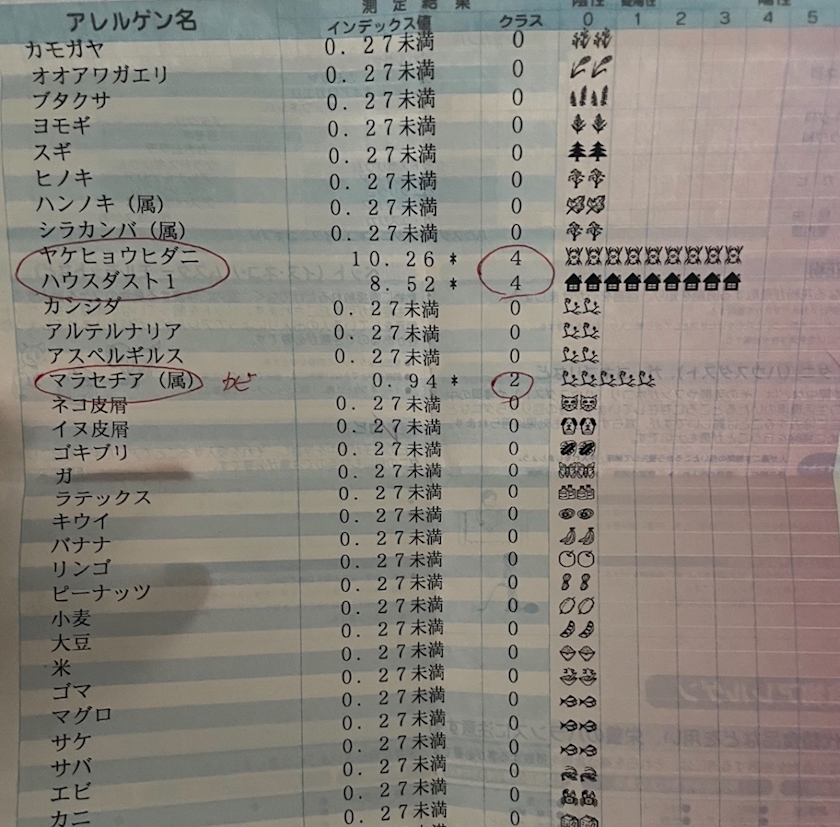 測 定 結 果
アレルゲン名 インデックス値 クラス 0 1 2 3 4 5
カモガヤ 0.27未満 0
オオアワガエリ 0.27未満 0
ブタクサ 0.27未満 0
ヨモギ 0.27未満 0
スギ 0.27未満 0
ヒノキ 0.27未満 0
ハンノキ(属) 0.27未満 0
シラカンバ(属) 0.27未満 0
ヤケヒョウヒダニ 10.26 * 4
ハウスダスト1 8.52 * 4
カンジダ 0.27未満 0
アルテルナリア 0.27未満 0
アスペルギルス 0.27未満 0
マラセチア(属) カビ 0.94 * 2
ネコ皮屑 0.27未満 0
イヌ皮屑 0.27未満 0
ゴキブリ 0.27未満 0
ガ 0.27未満 0
ラテックス 0.27未満 0
キウイ 0.27未満 0
バナナ 0.27未満 0
リンゴ 0.27未満 0
ピーナッツ 0.27未満 0
小麦 0.27未満 0
大豆 0.27未満 0
米 0.27未満 0
ゴマ 0.27未満 0
マグロ 0.27未満 0
サケ 0.27未満 0
サバ 0.27未満 0
エビ 0.27未満 0
カニ 0.27未満 0